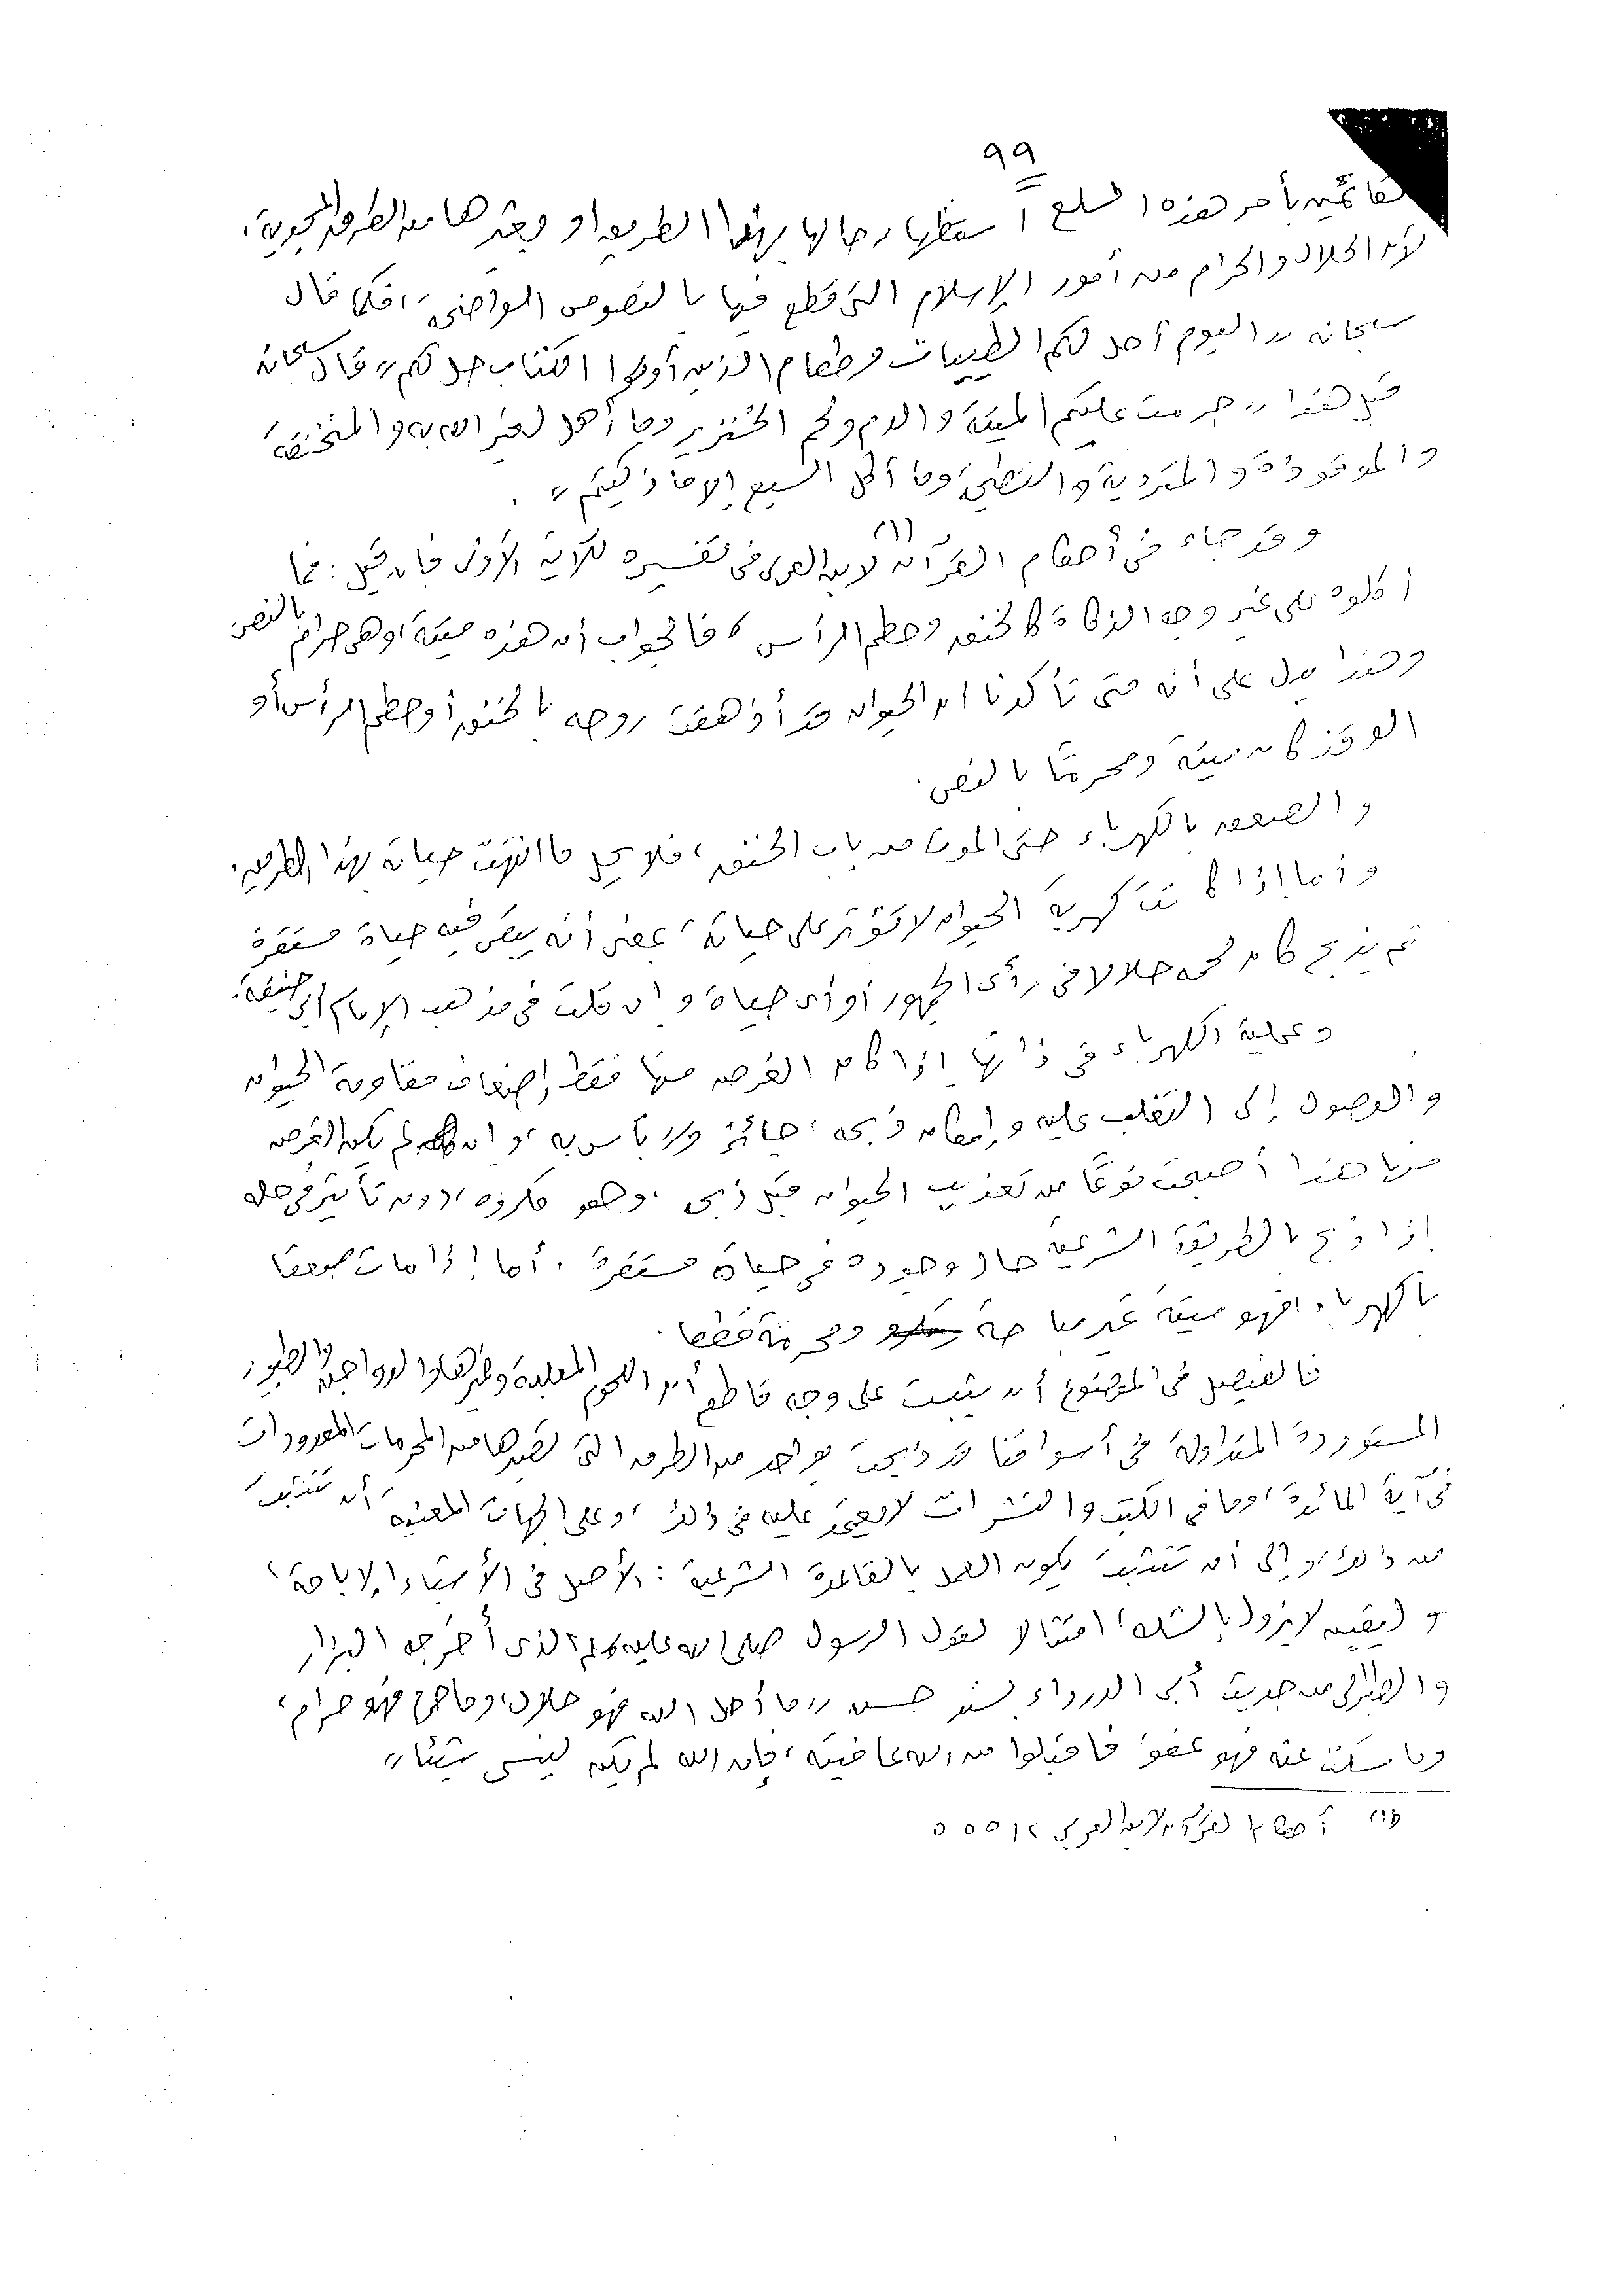 ٩٩
القائمين بأمر هذه السلع استظهار حالها بهذا الطريق أو بغيرها من الطرق المجدية،
لأن الحلال والحرام من أمور الإسلام التى قطع فيها بالنصوص الواضحة، فكما قال
سبحانه " اليوم أحل لكم الطيبات وطعام الذين أوتوا الكتاب حل لكم " قال سبحانه
قبل هذا " حرمت عليكم الميتة والدم ولحم الخنزير وما أهل لغير الله به والمنخنقة
والموقوذة والمتردية والنطيحة وما أكل السبع إلا ما ذكيتم " .
وقد جاء فى أحكام القرآن (١) لابن العربى فى تفسيره للآية الأولى فإن قيل : فما
أكلوه على غير وجه الذكاة كالخنق وحطم الرأس ، فالجواب أن هذه ميتة، وهى حرام بالنص
وهذا يدل على أنه متى تأكدنا أن الحيوان قد أزهقت روحه بالخنق أو حطم الرأس أو
الوقذ كان ميتة ومحرمًا بالنص.
والصعق بالكهرباء حتى الموت من باب الخنق، فلا يحل ما انتهت حياته بهذا الطريق.
وأما إذا كانت كهربة الحيوان لا تؤثر على حياته، بمعنى أنه يبقى فيه حياة مستقرة
ثم يذبح كان لحمه حلالا فى رأى الجمهور أو أى حياة وإن قلت فى مذهب الإمام أبى حنيفة.
وعملية الكهرباء فى ذاتها إذا كان الغرض منها فقط إضعاف مقاومة الحيوان
والوصول إلى التغلب عليه وإمكان ذبحه، جائزة ولا بأس به، وإن لم يكن الغرض
منها هذا أصبحت نوعًا من تعذيب الحيوان قبل ذبحه ، وهو مكروه، دون تأثير فى حله
إذا ذبح بالطريقة الشرعية حال وجوده فى حياة مستقرة . أما إذا مات صعقا
بالكهرباء، فهو ميتة غير مباحة ومحرمة قطعا .
فالفيصل فى الموضوع أن يثبت على وجه قاطع أن اللحوم المعلبة وغيرها والدواجن والطيور
المستوردة المتداولة فى أسواقنا قد ذبحت بواحد من الطرق التى تصيرها من المحرمات المعدودات
فى آية المائدة، وما فى الكتب والنشرات لا يعتمد عليه فى ذلك ، وعلى الجهات المعنية أن تتثبت
من ذلك، وإلى أن تتثبت يكون العمل بالقاعدة الشرعية : الأصل فى الأشياء الإباحة ،
واليقين لا يزول بالشك، امتثالا لقول الرسول صلى الله عليه وسلم الذى أخرجه البزار
والطبرانى من حديث أبى الدرداء بسند حسن " ما أحل الله فهو حلال، وما حرم فهو حرام ،
وما سكت عنه فهو عفو فاقبلوا من الله عافيته، فإن الله لم يكن لينسى شيئا "
(١) أحكام القرآن لابن العربى ٢ / ٥٥٥